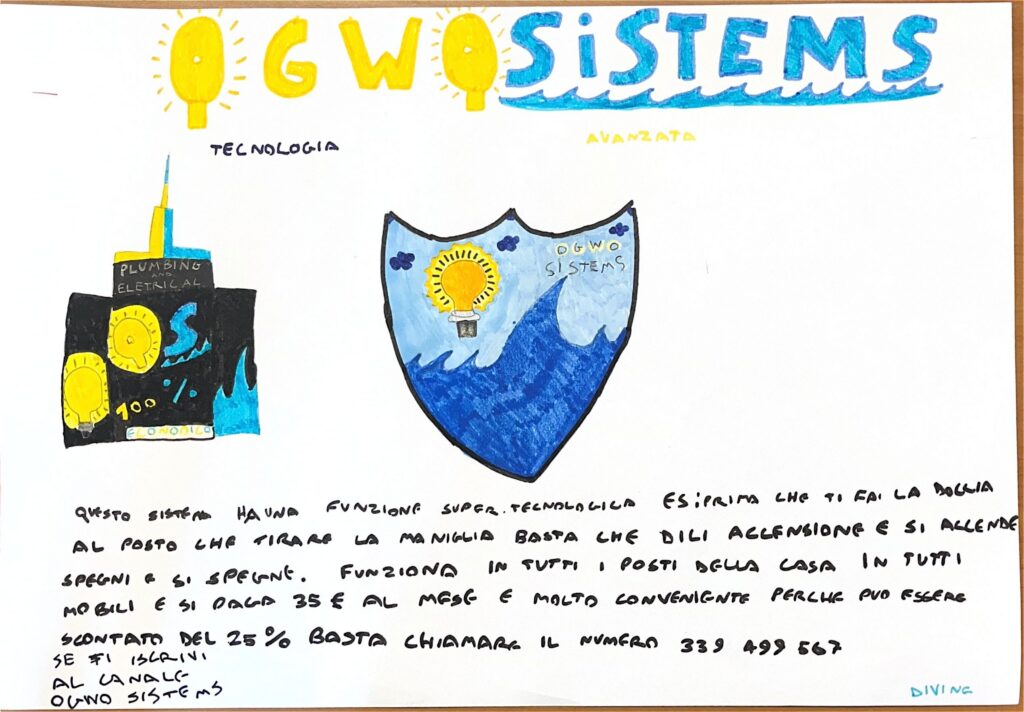 OGWO SiSTEMS
TECNOLOGIA AVANZATA
PLUMBING
AND
ELETRICAL
S
100 %
ECONOMICO
OGWO
SISTEMS
QUESTO SISTEMA HA UNA FUNZIONE SUPER.TECNOLOGICA ES:PRIMA CHE TI FAI LA DOCCIA
AL POSTO CHE TIRARE LA MANIGLIA BASTA CHE DILI ACCENSIONE E SI ACCENDE
SPEGNI E SI SPEGNE. FUNZIONA IN TUTTI I POSTI DELLA CASA IN TUTTI
MOBILI E SI PAGA 35 € AL MESE E MOLTO CONVENIENTE PERCHE PUO ESSERE
SCONTATO DEL 25% BASTA CHIAMARE IL NUMERO 339 499 567
SE TI ISCRIVI
AL CANALE
OGWO SISTEMS
DIVINE